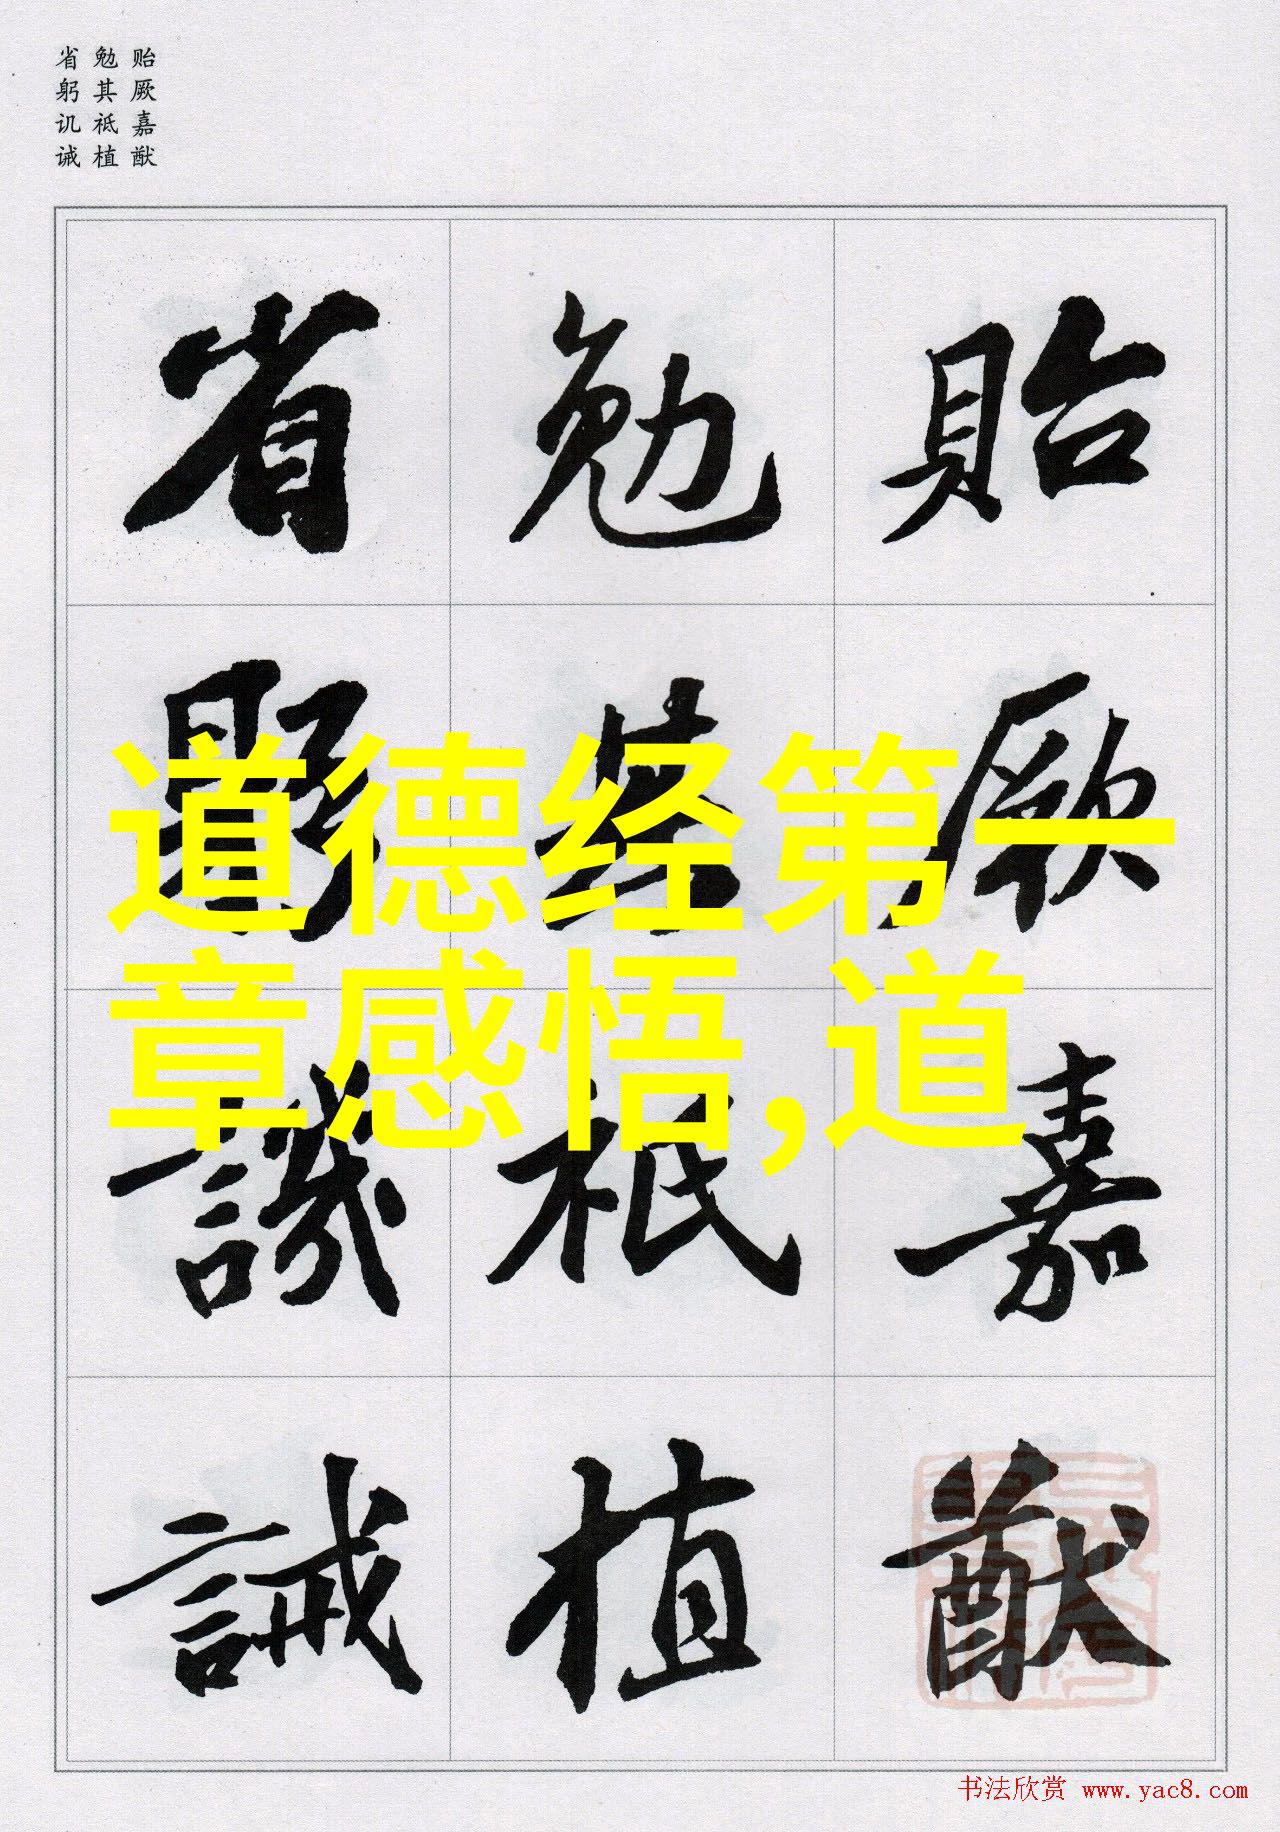 贻厥嘉猷
勉其祗植
省躬讥诫
貽厥嘉猷
勉其祗植
省躬譏誡
道德经第一
章感悟,道
书法欣赏 www.yac8.com